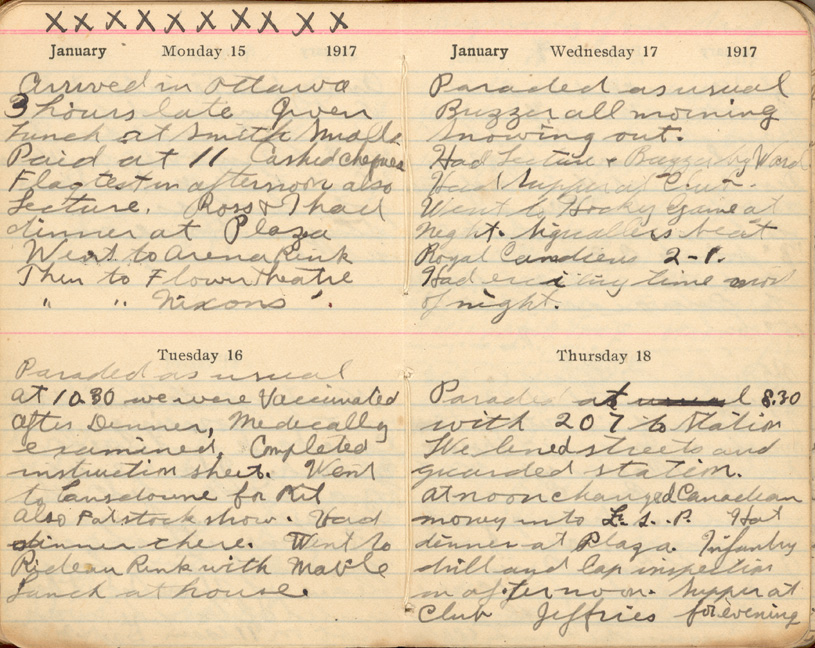 X X X X X X X X X X
January Monday 15 1917
Arrived in Ottawa
3 hours late Given
Lunch at Smith
Paid at 11 Cashed cheques
Flag test in afternoon also
Lecture. Ross & I had
dinner at Plaza
Went to Arena Rink
Then to Flower Theatre
" " Nixons ".
Tuesday 16
Paraded as usual
at 10.30 we were Vaccinated
after Dinner, Medecally
examined, Completed
instruction sheet. Went
to Lansdowne for Kit
also Fat stock show. Had
dinner there. Went to
Rideau Rink with Mable
Lunch at house.
January Wednesday 17 1917
Paraded as usual
Buzzer all morning
Snowing out.
Had Lecture + Buzzer by Ward
Had Supper at Club.
Went to Hocky Game at
night. Signallers beat
Royal Canadiens 2-1.
Had exciting time
of night.
Thursday 18
Paraded at usual 8.30
with 207 to Station
We lined streets and
guarded station.
At noon changed Canadian
money into L. S. P. Hot
dinner at Plaza. Infantry
drill and Cap inspection
in afternoon. Supper at
Club Jeffries for evening